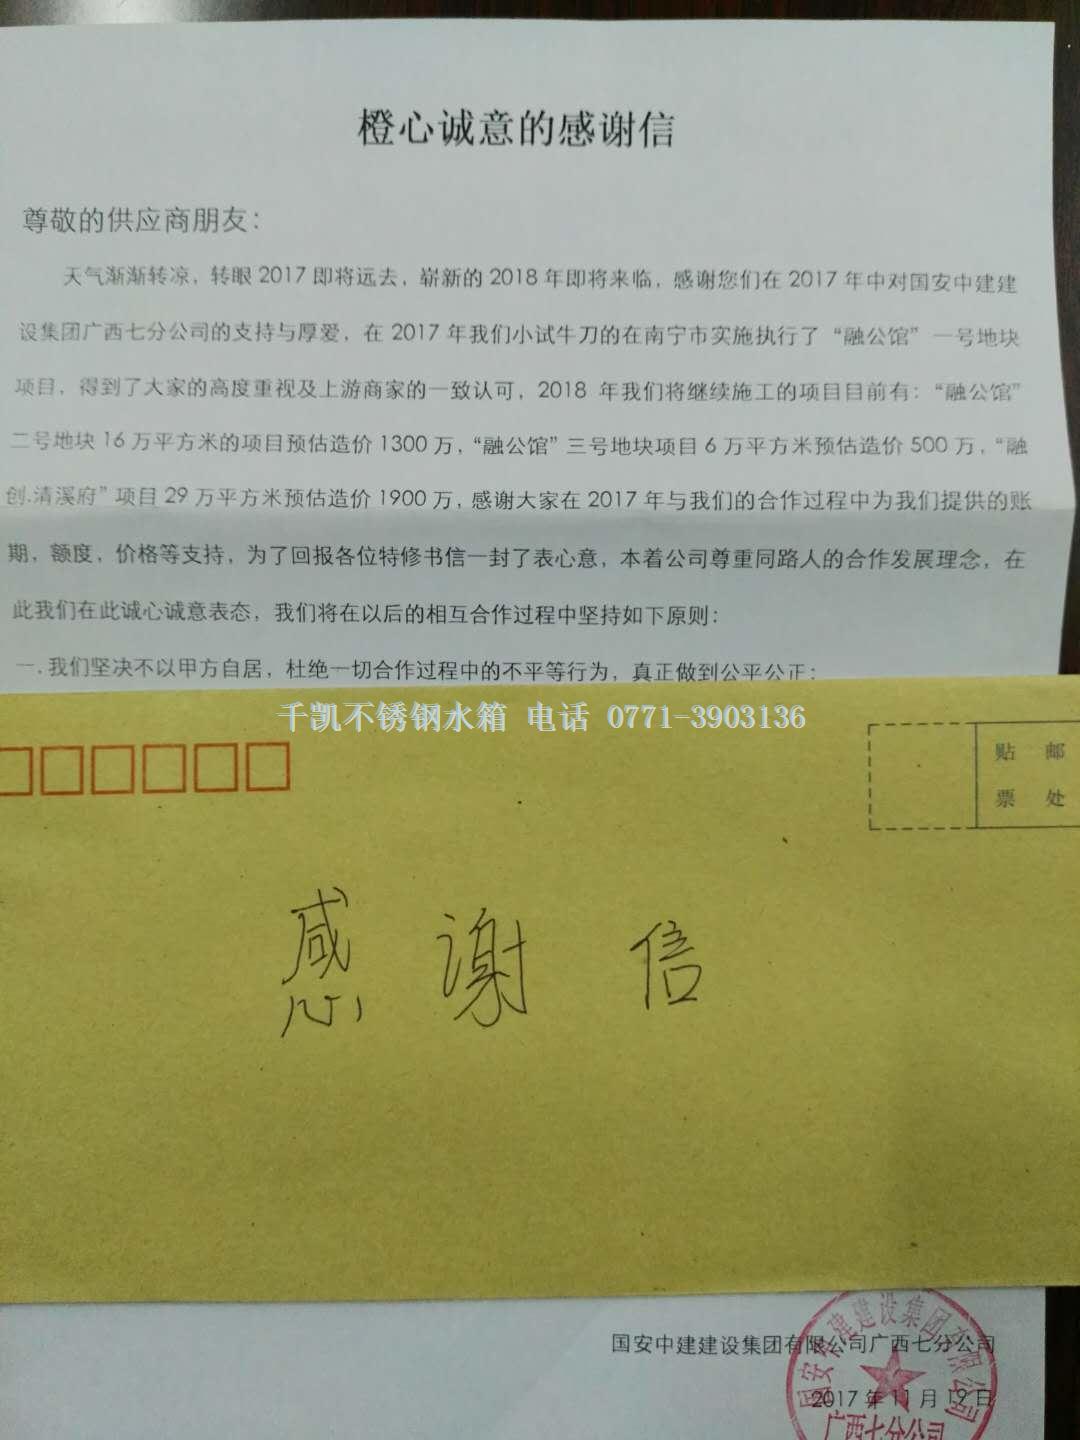 橙心诚意的感谢信
尊敬的供应商朋友：
天气渐渐转凉，转眼 2017 即将远去，崭新的 2018 年即将来临，感谢您们在 2017 年中对国安中建建
设集团广西七分公司的支持与厚爱，在 2017 年我们小试牛刀的在南宁市实施执行了“融公馆”一号地块
项目，得到了大家的高度重视及上游商家的一致认可，2018 年我们将继续施工的项目目前有：“融公馆”
二号地块 16 万平方米的项目预估造价 1300 万，“融公馆”三号地块项目 6 万平方米预估造价 500 万，“融
创.清溪府”项目 29 万平方米预估造价 1900 万，感谢大家在 2017 年与我们的合作过程中为我们提供的账
期，额度，价格等支持，为了回报各位特修书信一封了表心意，本着公司尊重同路人的合作发展理念，在
此我们在此诚心诚意表态，我们将在以后的相互合作过程中坚持如下原则：
一.我们坚决不以甲方自居，杜绝一切合作过程中的不平等行为，真正做到公平公正；
千凯不锈钢水箱 电话 0771-3903136
贴 邮
票 处
感 谢 信
国安中建建设集团有限公司广西七分公司
2017 年 11 月 19 日
国安中建建设集团有限公司
广西七分公司